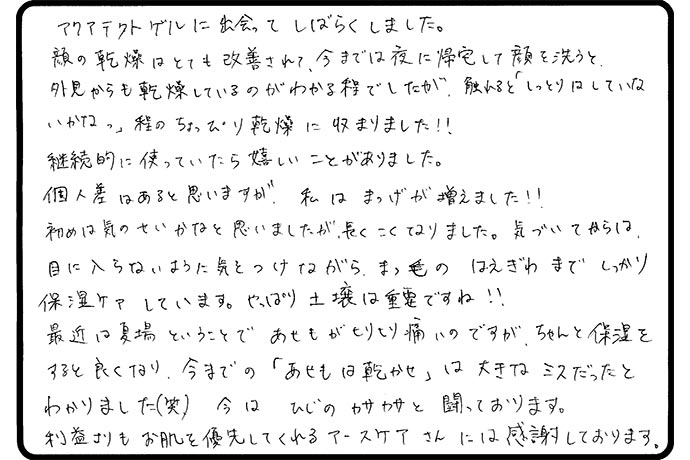 アクアテクトゲルに出会ってしばらくしました。
顔の乾燥はとても改善されて、今までは夜に帰宅して顔を洗うと、
外見からも乾燥しているのがわかる程でしたが、触れると「しっとりはしていな
いかなっ」程のちょっぴり乾燥に収まりました!!
継続的に使っていたら嬉しいことがありました。
個人差はあると思いますが、私はまつげが増えました!!
初めは気のせいかなと思いましたが、長くこくなりました。気づいてからは、
目に入らないように気をつけながら、まつ毛のはえぎわまでしっかり
保湿ケアしています。やっぱり土壌は重要ですね!!
最近は夏場ということであせもがヒリヒリ痛いのですが、ちゃんと保湿を
すると良くなり、今までの「あせもは乾かせ」は大きなミスだったと
わかりました(笑) 今はひじのカサカサと闘っております。
利益よりもお肌を優先してくれるアースケアさんには感謝しております。